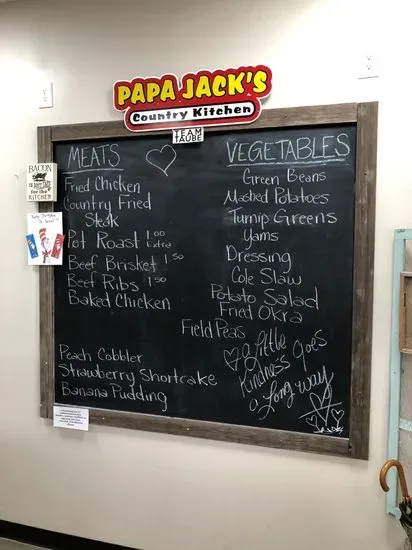 PAPA JACK'S
Country Kitchen
TEAM
TAUBE
MEATS
Fried Chicken
Country Fried
Steak
Pot Roast 1.00
Extra
Beef Brisket 1.50
Beef Ribs 1.50
Baked Chicken
Peach Cobbler
Strawberry Shortcake
Banana Pudding
VEGETABLES
Green Beans
Mashed Potatoes
Turnip Greens
Yams
Dressing
Cole Slaw
Potato Salad
Fried Okra
Field Peas
a little
Kindness goes
a Long way
BACON
for the
KITCHEN